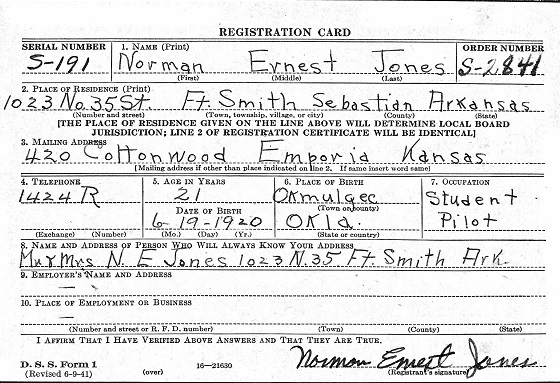 REGISTRATION CARD
SERIAL NUMBER 1. NAME (Print) ORDER NUMBER
S-191 Norman Ernest Jones S-2841
(First) (Middle) (Last)
2. PLACE OF RESIDENCE (Print)
1023 No. 35 St. Ft. Smith Sebastian Arkansas
(Number and street) (Town, township, village, or city) (County) (State)
[THE PLACE OF RESIDENCE GIVEN ON THE LINE ABOVE WILL DETERMINE LOCAL BOARD
JURISDICTION; LINE 2 OF REGISTRATION CERTIFICATE WILL BE IDENTICAL]
3. MAILING ADDRESS
420 Cottonwood Emporia Kansas
[Mailing address if other than place indicated on line 2. If same insert word same]
4. TELEPHONE 5. AGE IN YEARS 6. PLACE OF BIRTH 7. OCCUPATION
1424 R 21 Okmulgee Student
(Town or county)
DATE OF BIRTH
6-19-1920 Okla. Pilot
(Exchange) (Number) (Mo.) (Day) (Yr.) (State or country)
8. NAME AND ADDRESS OF PERSON WHO WILL ALWAYS KNOW YOUR ADDRESS
Mrs N. E Jones 1023 N. 35 Ft. Smith Ark.
9. EMPLOYER'S NAME AND ADDRESS
—
10. PLACE OF EMPLOYMENT OR BUSINESS
—
(Number and street or R. F. D. number) (Town) (County) (State)
I AFFIRM THAT I HAVE VERIFIED ABOVE ANSWERS AND THAT THEY ARE TRUE.
D. S. S. Form 1 Norman Ernest Jones
(Revised 6-9-41) (over) 16—21630 (Registrant's signature)